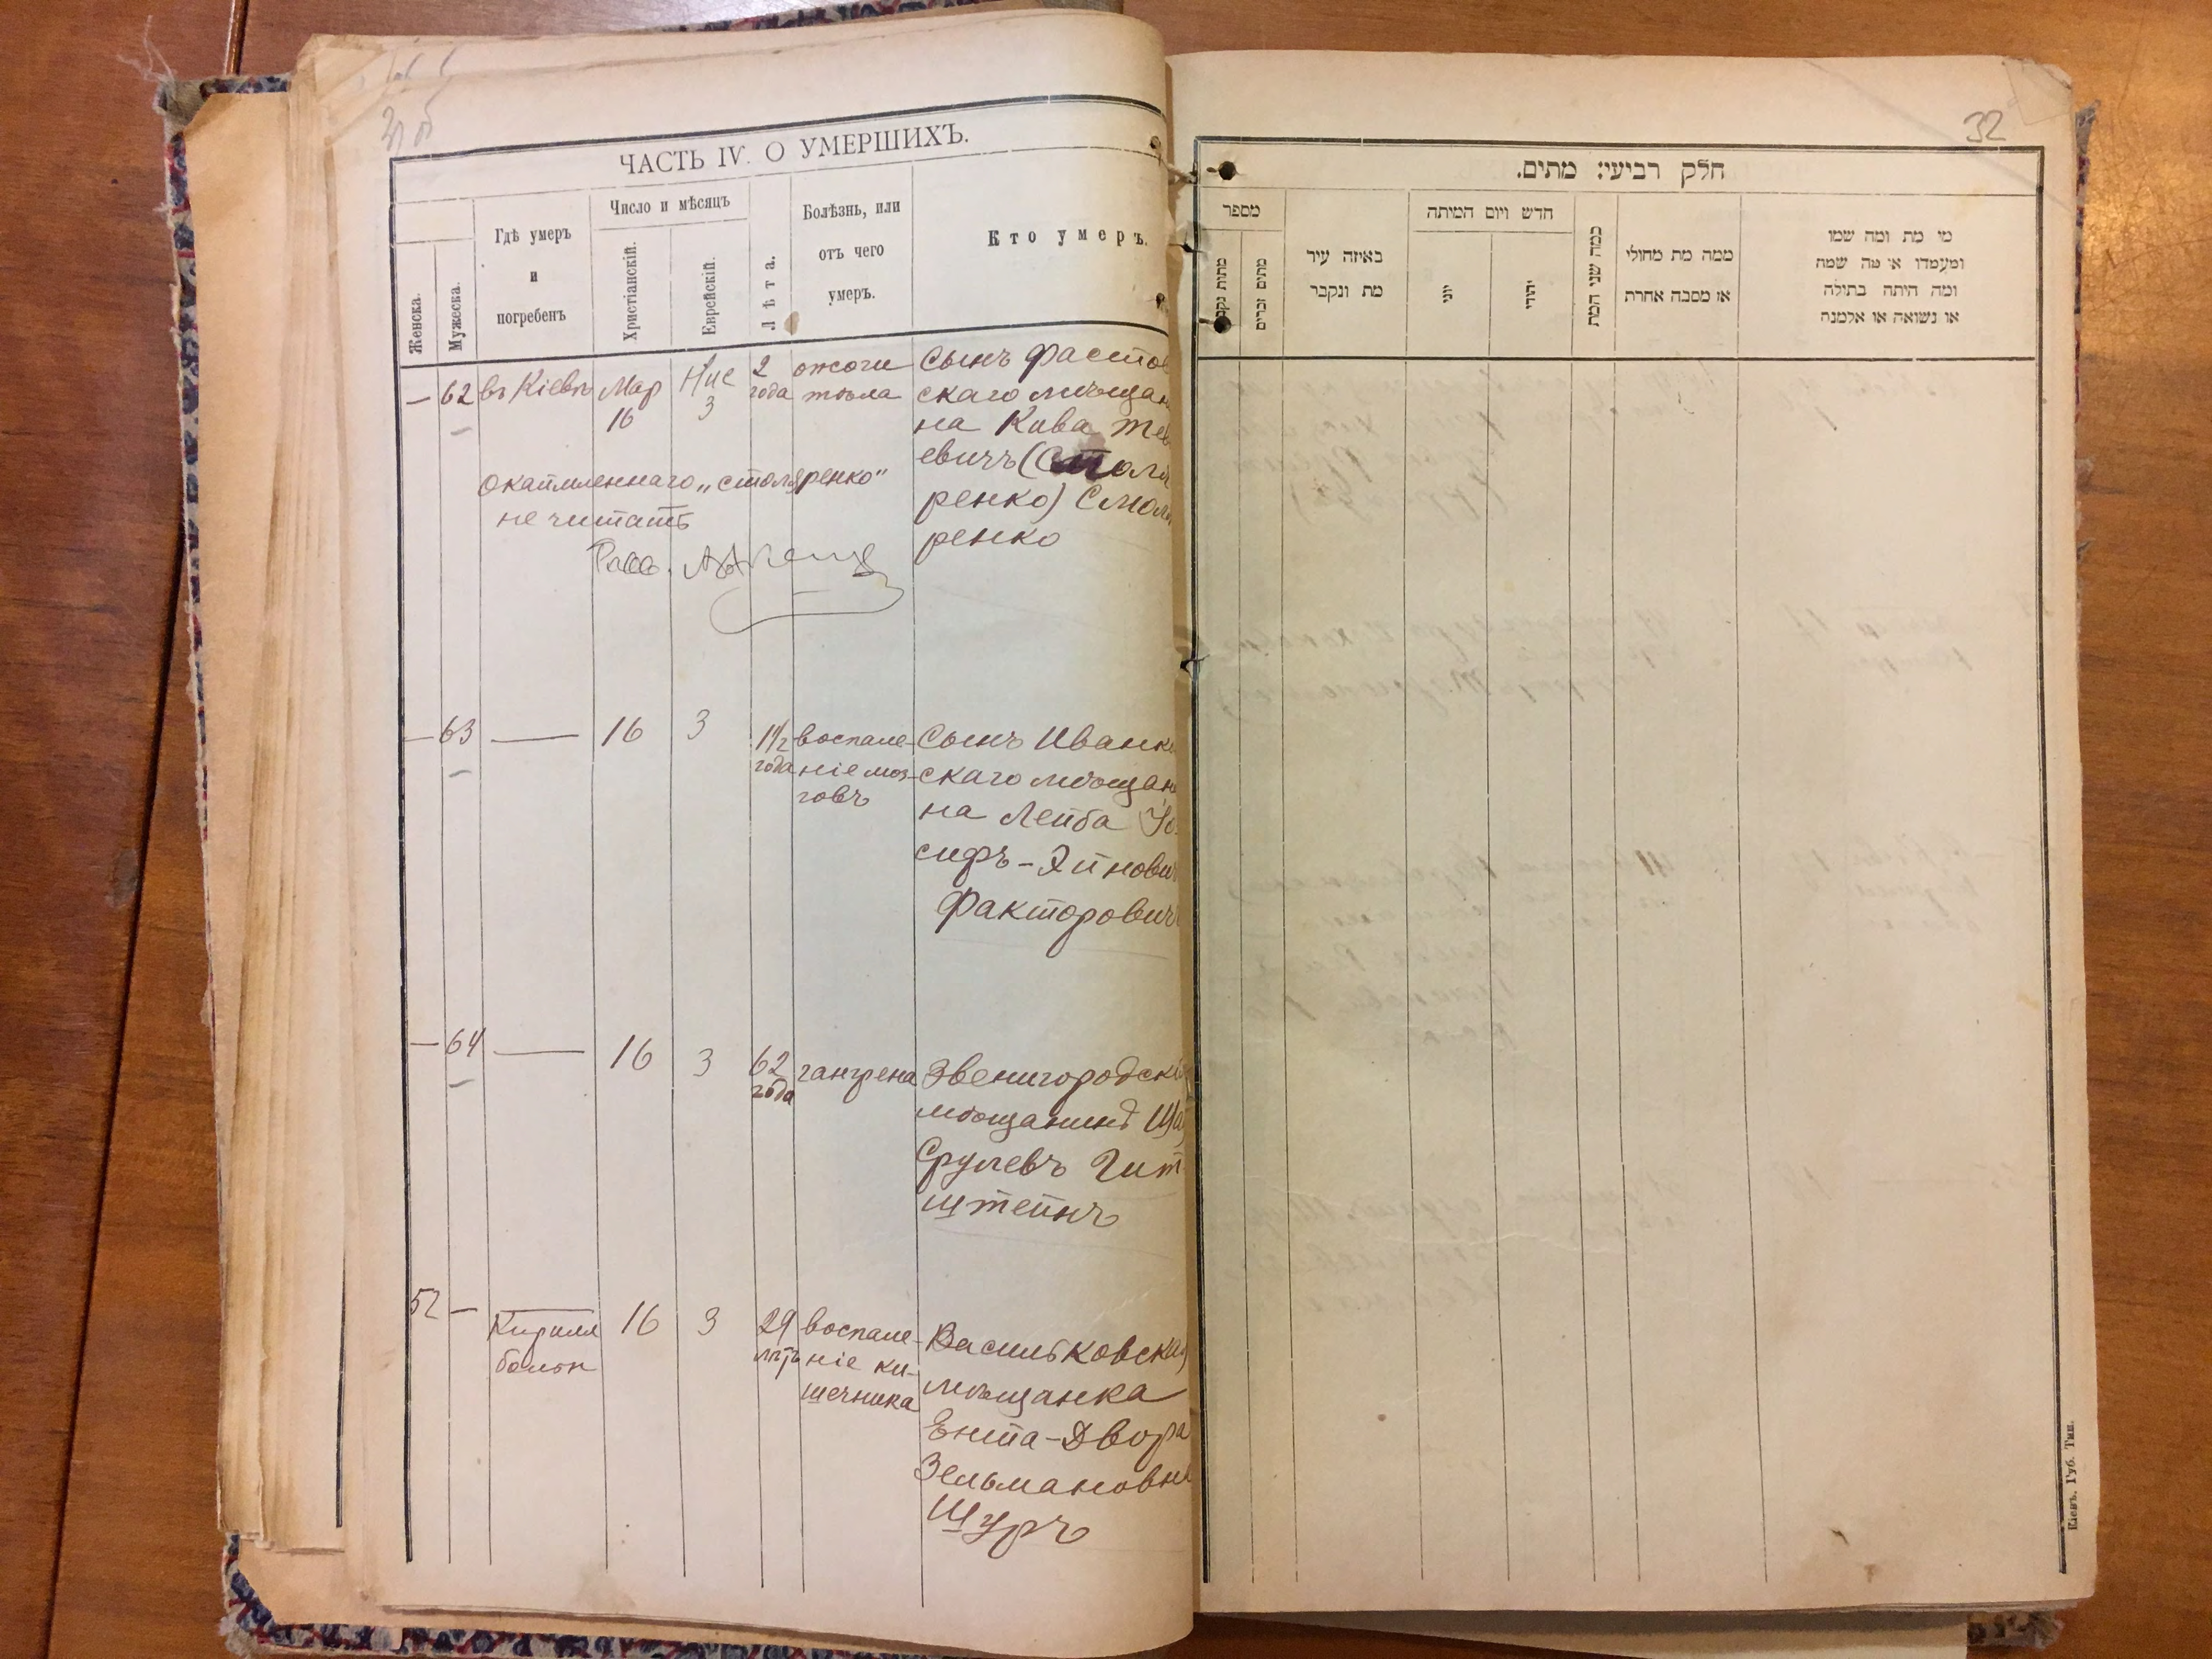 31 об
ЧАСТЬ IV. О УМЕРШИХЪ.
Женска.
Мужеска.
Гдѣ умеръ
и
погребенъ
Число и мѣсяцъ
Христіанскій.
Еврейскій.
Лѣта.
Болѣзнь, или
отъ чего
умеръ.
Кто умеръ.
— 62 въ Кіевѣ Мар 16 Нис 3 2 года ожоги тѣла
Сынъ Фастов
скаго мѣщан
на Кива Тев
евичъ (Столя
ренко) Смоля
ренко
окаймленнаго „столяренко"
не читать
— 63 — 16 3 1½ года воспале-
ніе моз-
говъ
Сынъ Иванк
скаго мѣщан
на Лейба Іо
сифъ-Эйнович
Факторович
— 64 — 16 3 62 года гангрена
Звенигородскі
мѣщанинъ
Срулевъ Гит
штейнъ
52 — Кирилл
больн
16 3 29 лѣтъ воспале-
ніе ки-
шечника
Васильковская
мѣщанка
Ента-Двора
Зельмановна
Щуръ
32
חלק רביעי: מתים.
מספר
מתות נקב
מתים זכרים
באיזה עיר
מת ונקבר
חדש ויום המיתה
יוני
יהודי
כמה שני המת
ממה מת מחולי
או מסבה אחרת
מי מת ומה שמו
ומעמדו או מה שמה
ומה היתה בתילה
או נשואה או אלמנה
Кіевъ. Губ. Тип.